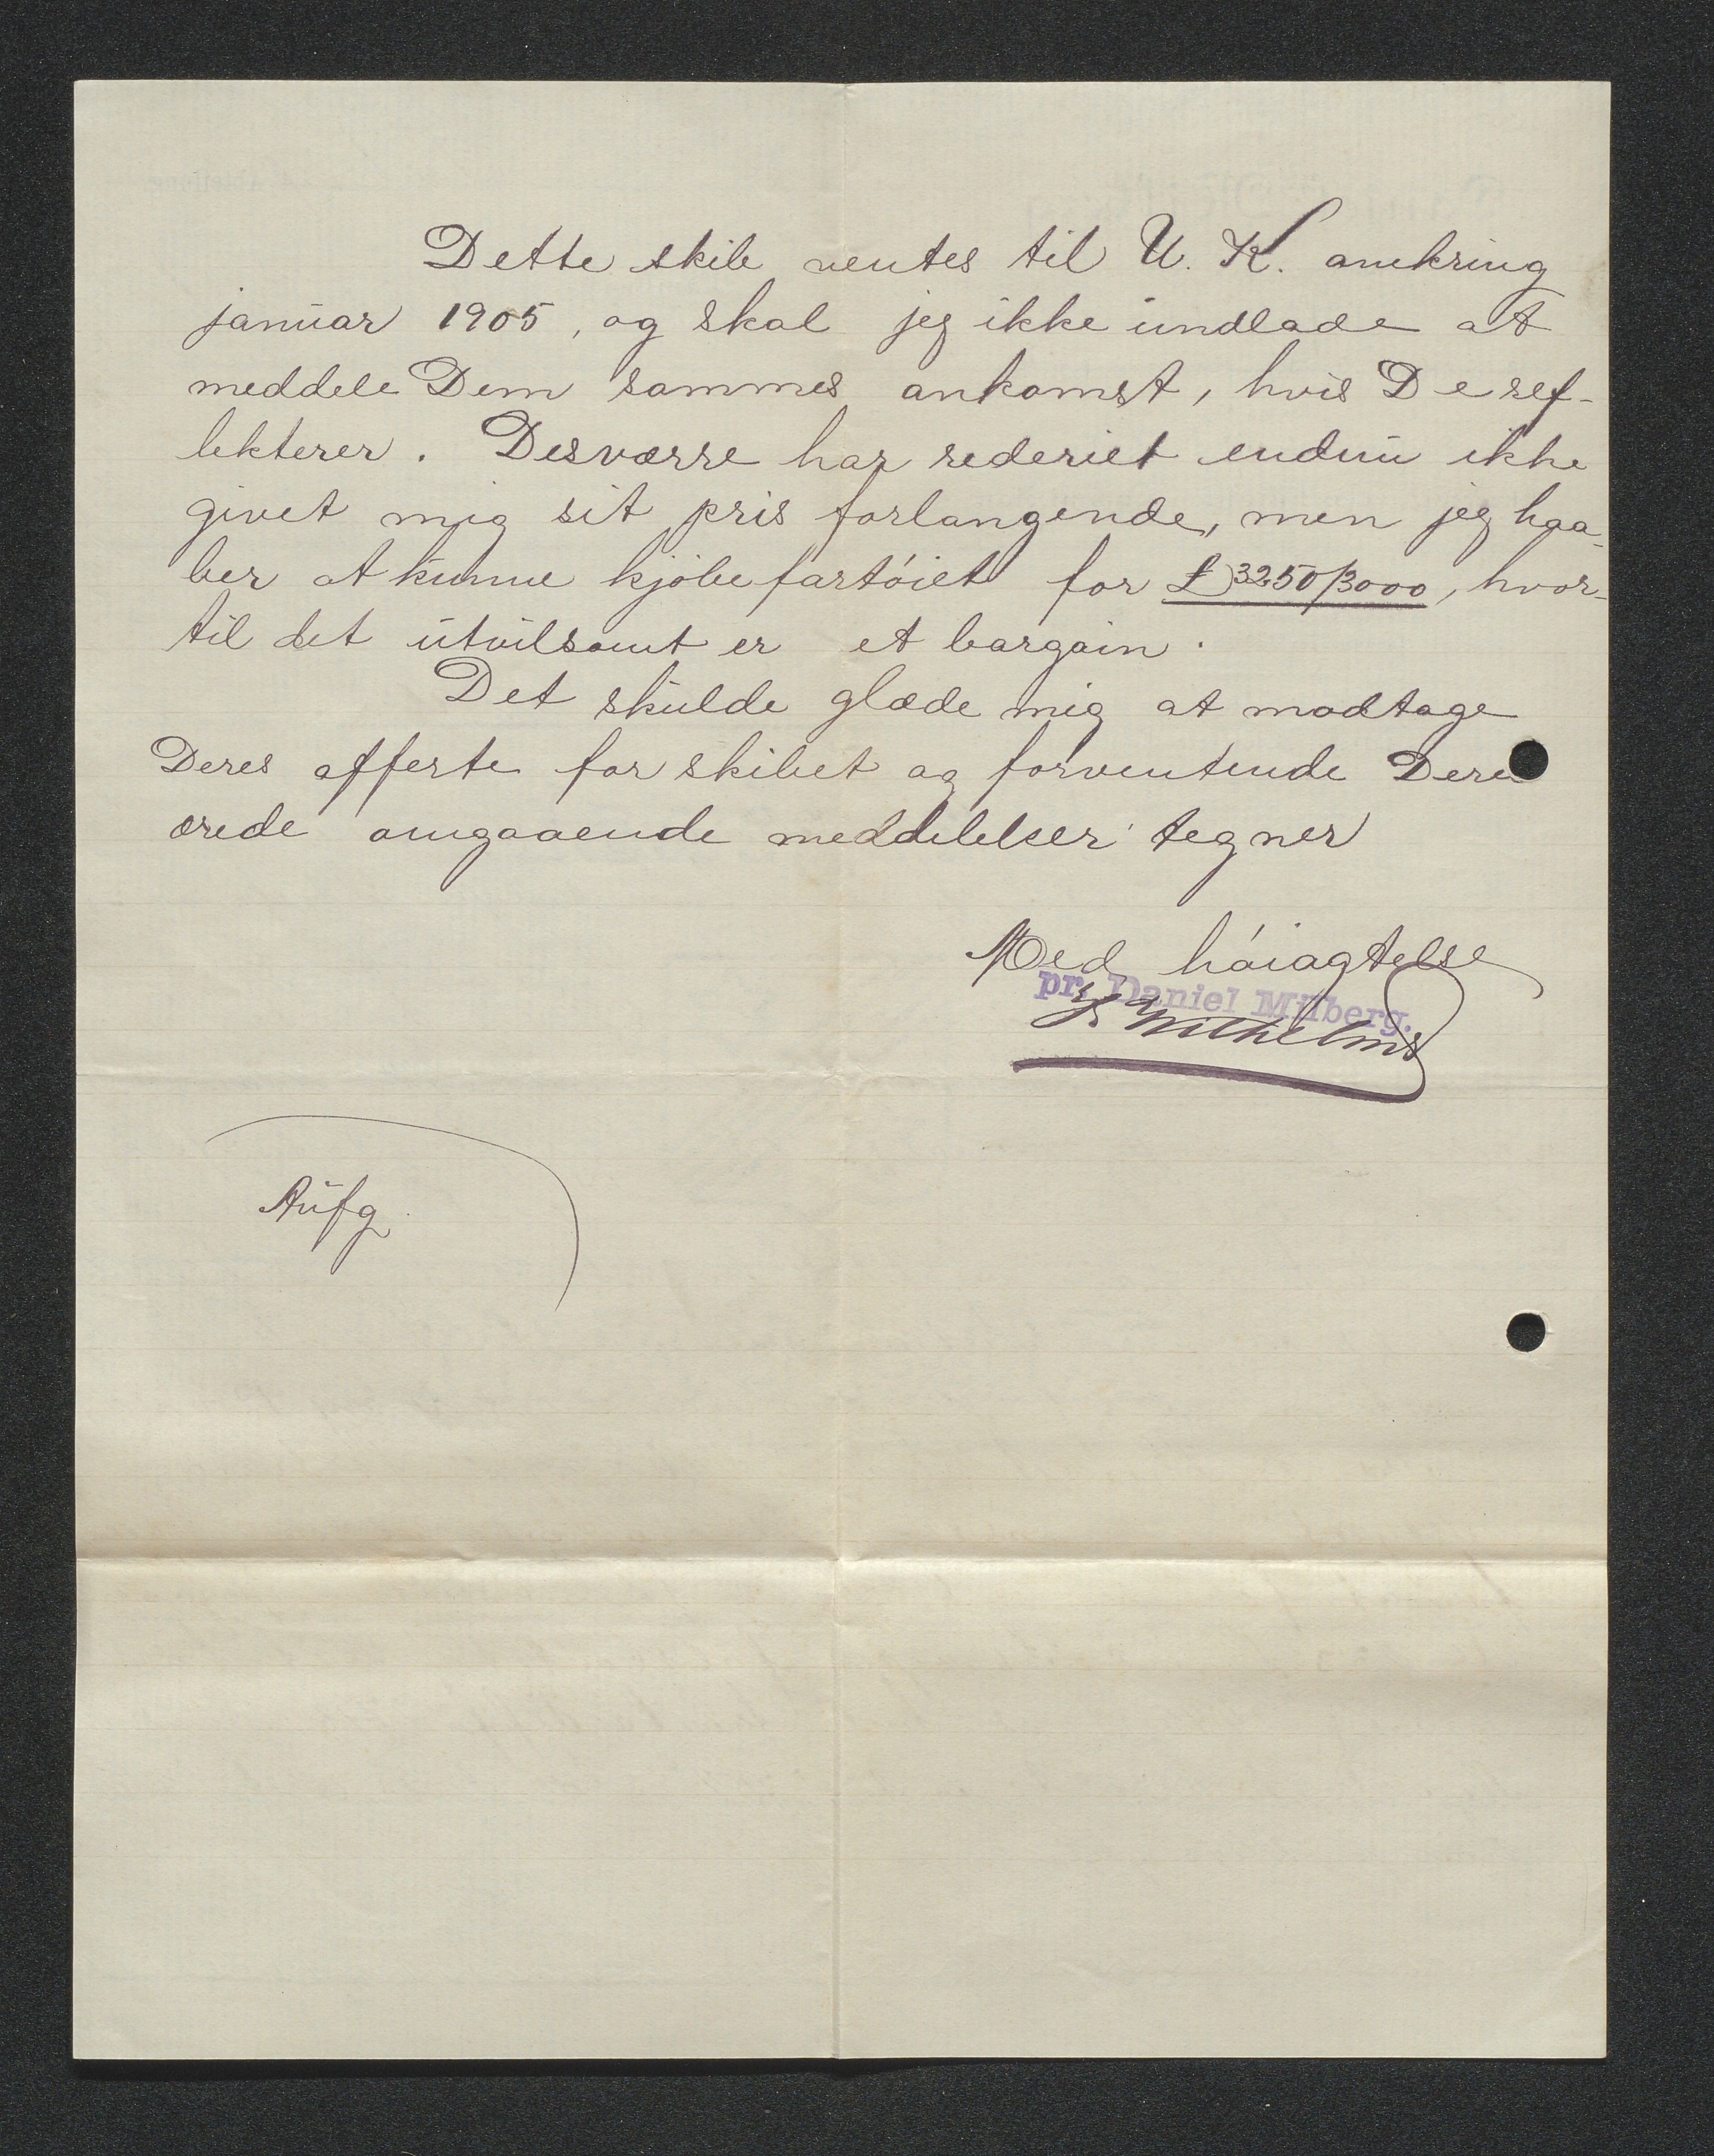 Dette skib ventes til U. K. omkring
januar 1905, og skal jeg ikke undlade at
meddele Dem sammes ankomst, hvis De ref-
lekterer. Desværre har rederiet endnu ikke
givet mig sit pris forlangende, men jeg haa-
ber at kunne kjöbe fartöiet for £ 3250/3000, hvor-
til det utvilsomt er et bargain.
Det skulde glæde mig at modtage
Deres offerte for skibet og forventende Deres
ærede omgaaende meddelelser tegner
Med höiagtelse
pr. Daniel Milberg.
Wilhelms
Aufg.